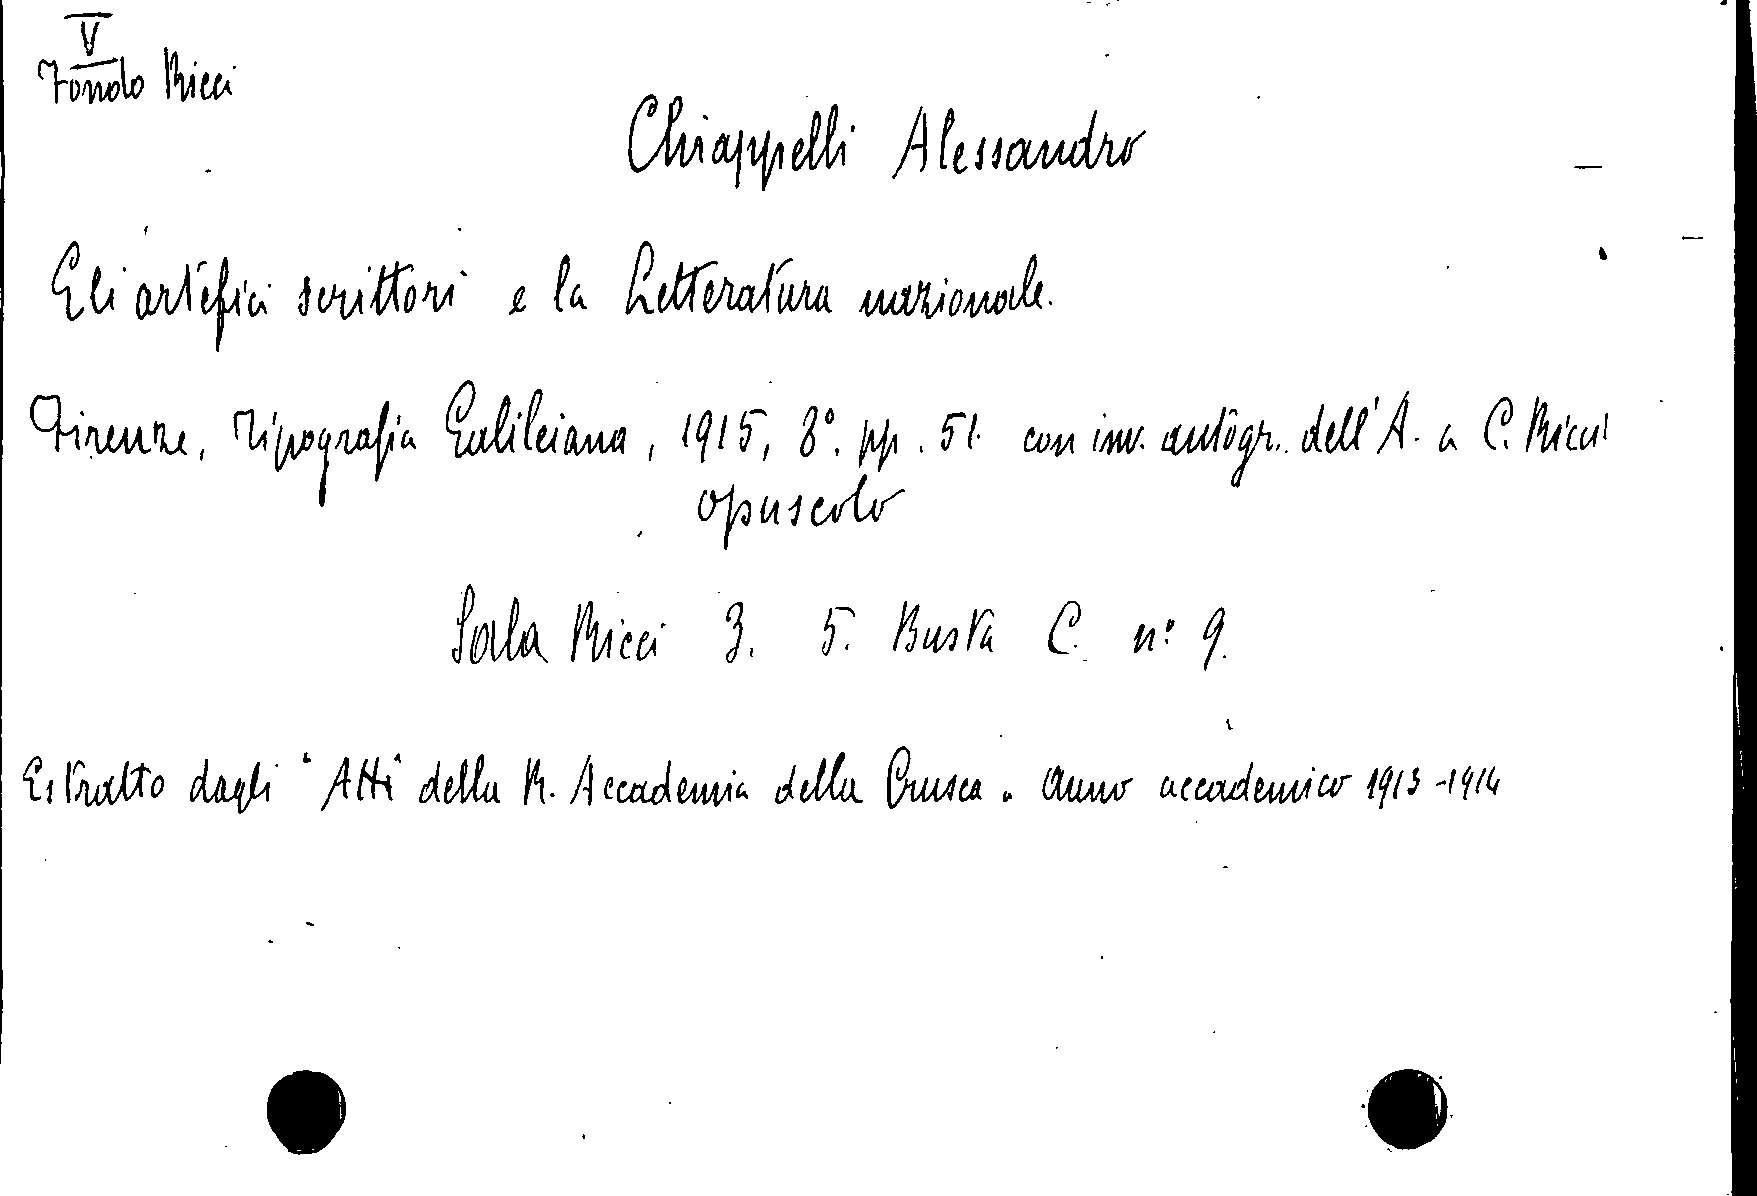 V
Fondo Ricci
Chiappelli Alessandro
Gli artefici scrittori e la Letteratura nazionale.
Firenze, Tipografia Galileiana, 1915, 8°. pp. 51. con inv. autogr. dell'A. a C. Ricci
opuscolo
Sala Ricci 3. 5. Busta C. n° 9.
Estratto dagli "Atti della R. Accademia della Crusca". Anno accademico 1913-1914